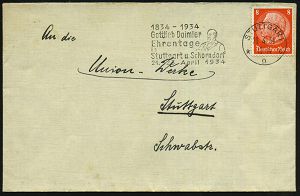 1834 - 1934
Gottlieb Daimler
Ehrentage
Stuttgart u. Schorndorf
April 1934
STUTTGART
8 8
Deutsches Reich
An die
Union-Werke
Stuttgart
Schwabstr.